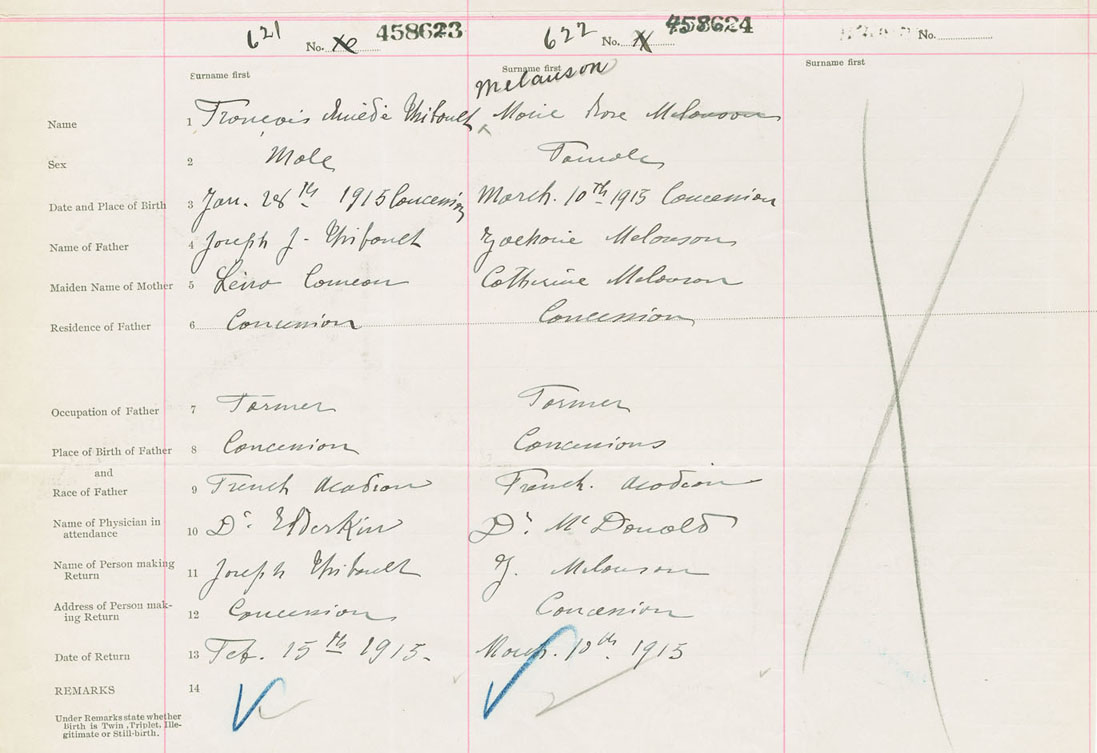 621 No. 458623
622 No. 458624
No.
Surname first
Surname first
Surname first
Melanson
Name 1 François Thibault Marie Rose Melanson
Sex 2 Male Female
Date and Place of Birth 3 Jan. 28th 1915 Concession March. 10th 1915 Concession
Name of Father 4 Joseph J. Thibault Melanson
Maiden Name of Mother 5 Comeau Catherine Melanson
Residence of Father 6 Concession Concession
Occupation of Father 7 Farmer Farmer
Place of Birth of Father 8 Concession Concessions
and
Race of Father 9 French Acadian French. Acadian
Name of Physician in
attendance 10 Dr Elderkin Dr McDonald
Name of Person making
Return 11 Joseph Thibault Melanson
Address of Person mak-
ing Return 12 Concession Concession
Date of Return 13 Feb. 15th 1915. March. 10th. 1915
REMARKS 14
Under Remarks state whether
Birth is Twin, Triplet, Ille-
gitimate or Still-birth.